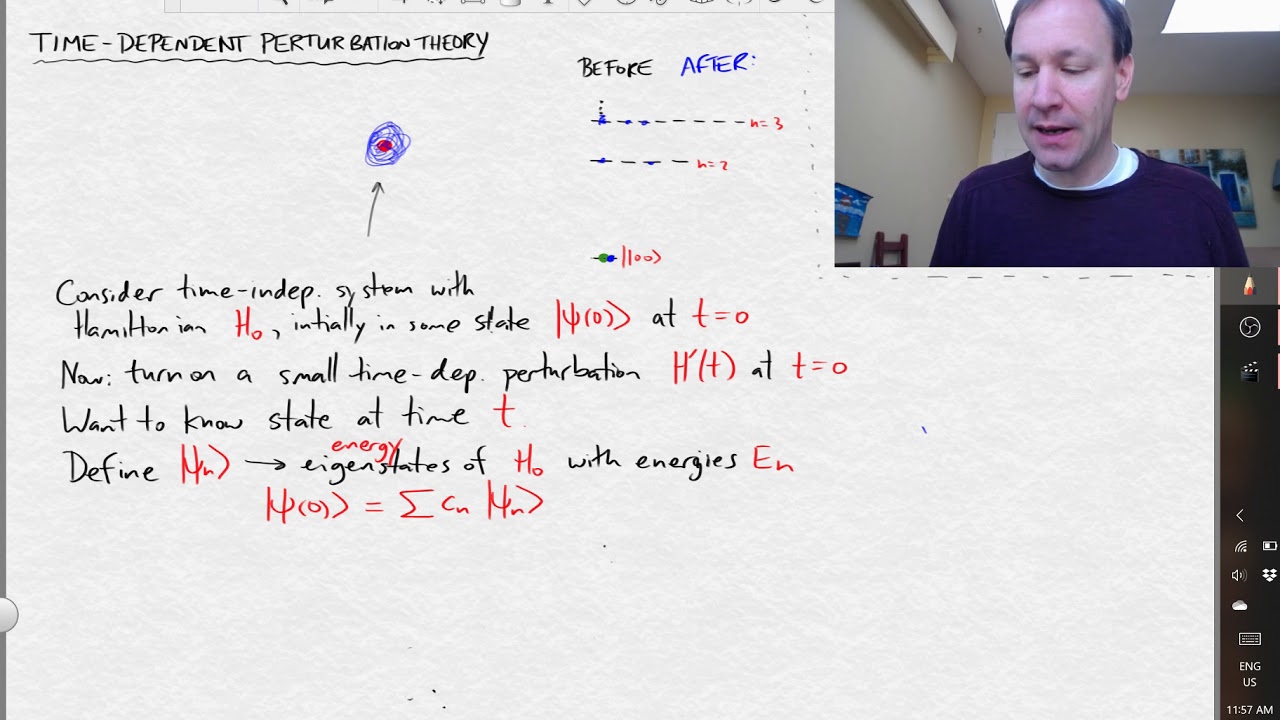 TIME-DEPENDENT PERTURBATION THEORY
BEFORE AFTER:
n=3
n=2
|100⟩
Consider time-indep. system with
Hamiltonian H₀, intially in some state |ψ(0)⟩ at t=0
Now: turn on a small time-dep. perturbation H'(t) at t=0
Want to know state at time t.
energy
Define |ψₙ⟩ → eigenstates of H₀ with energies Eₙ
|ψ(0)⟩ = ∑ cₙ |ψₙ⟩
ENG
US
11:57 AM